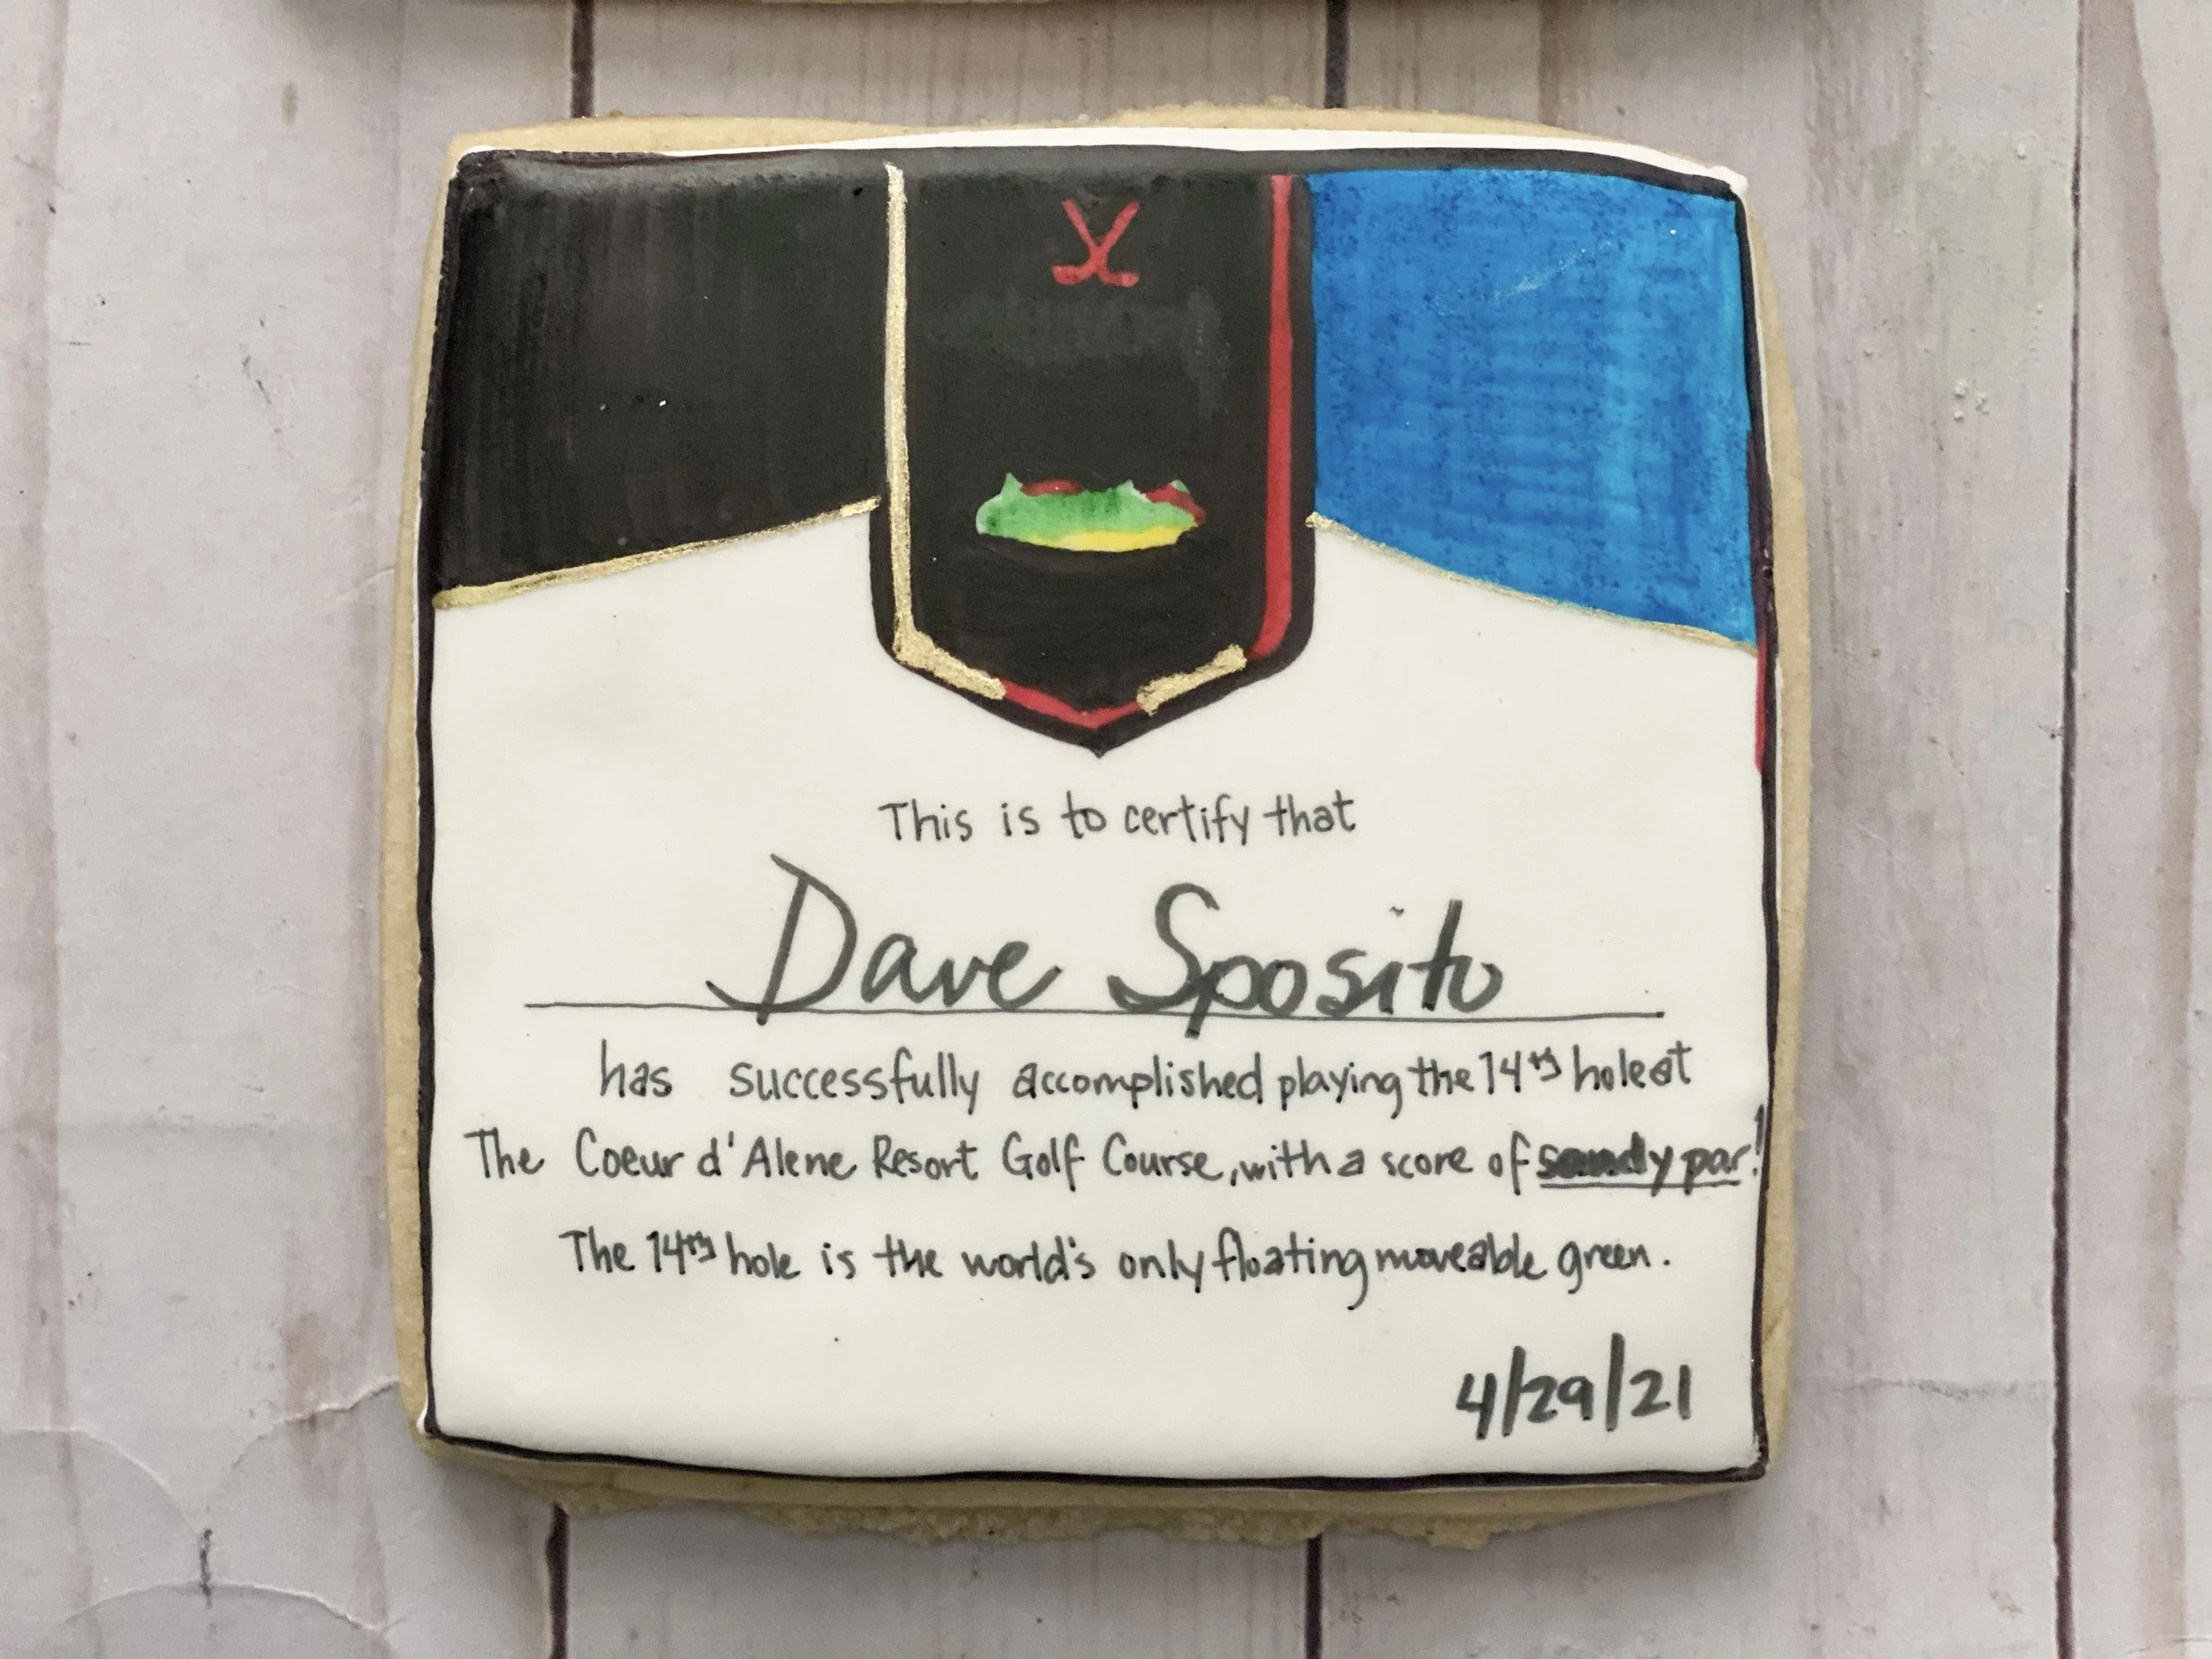 This is to certify that
Dave Sposito
has successfully accomplished playing the 14th hole at
The Coeur d'Alene Resort Golf Course, with a score of sandy par!
The 14th hole is the world's only floating moveable green.
4/29/21